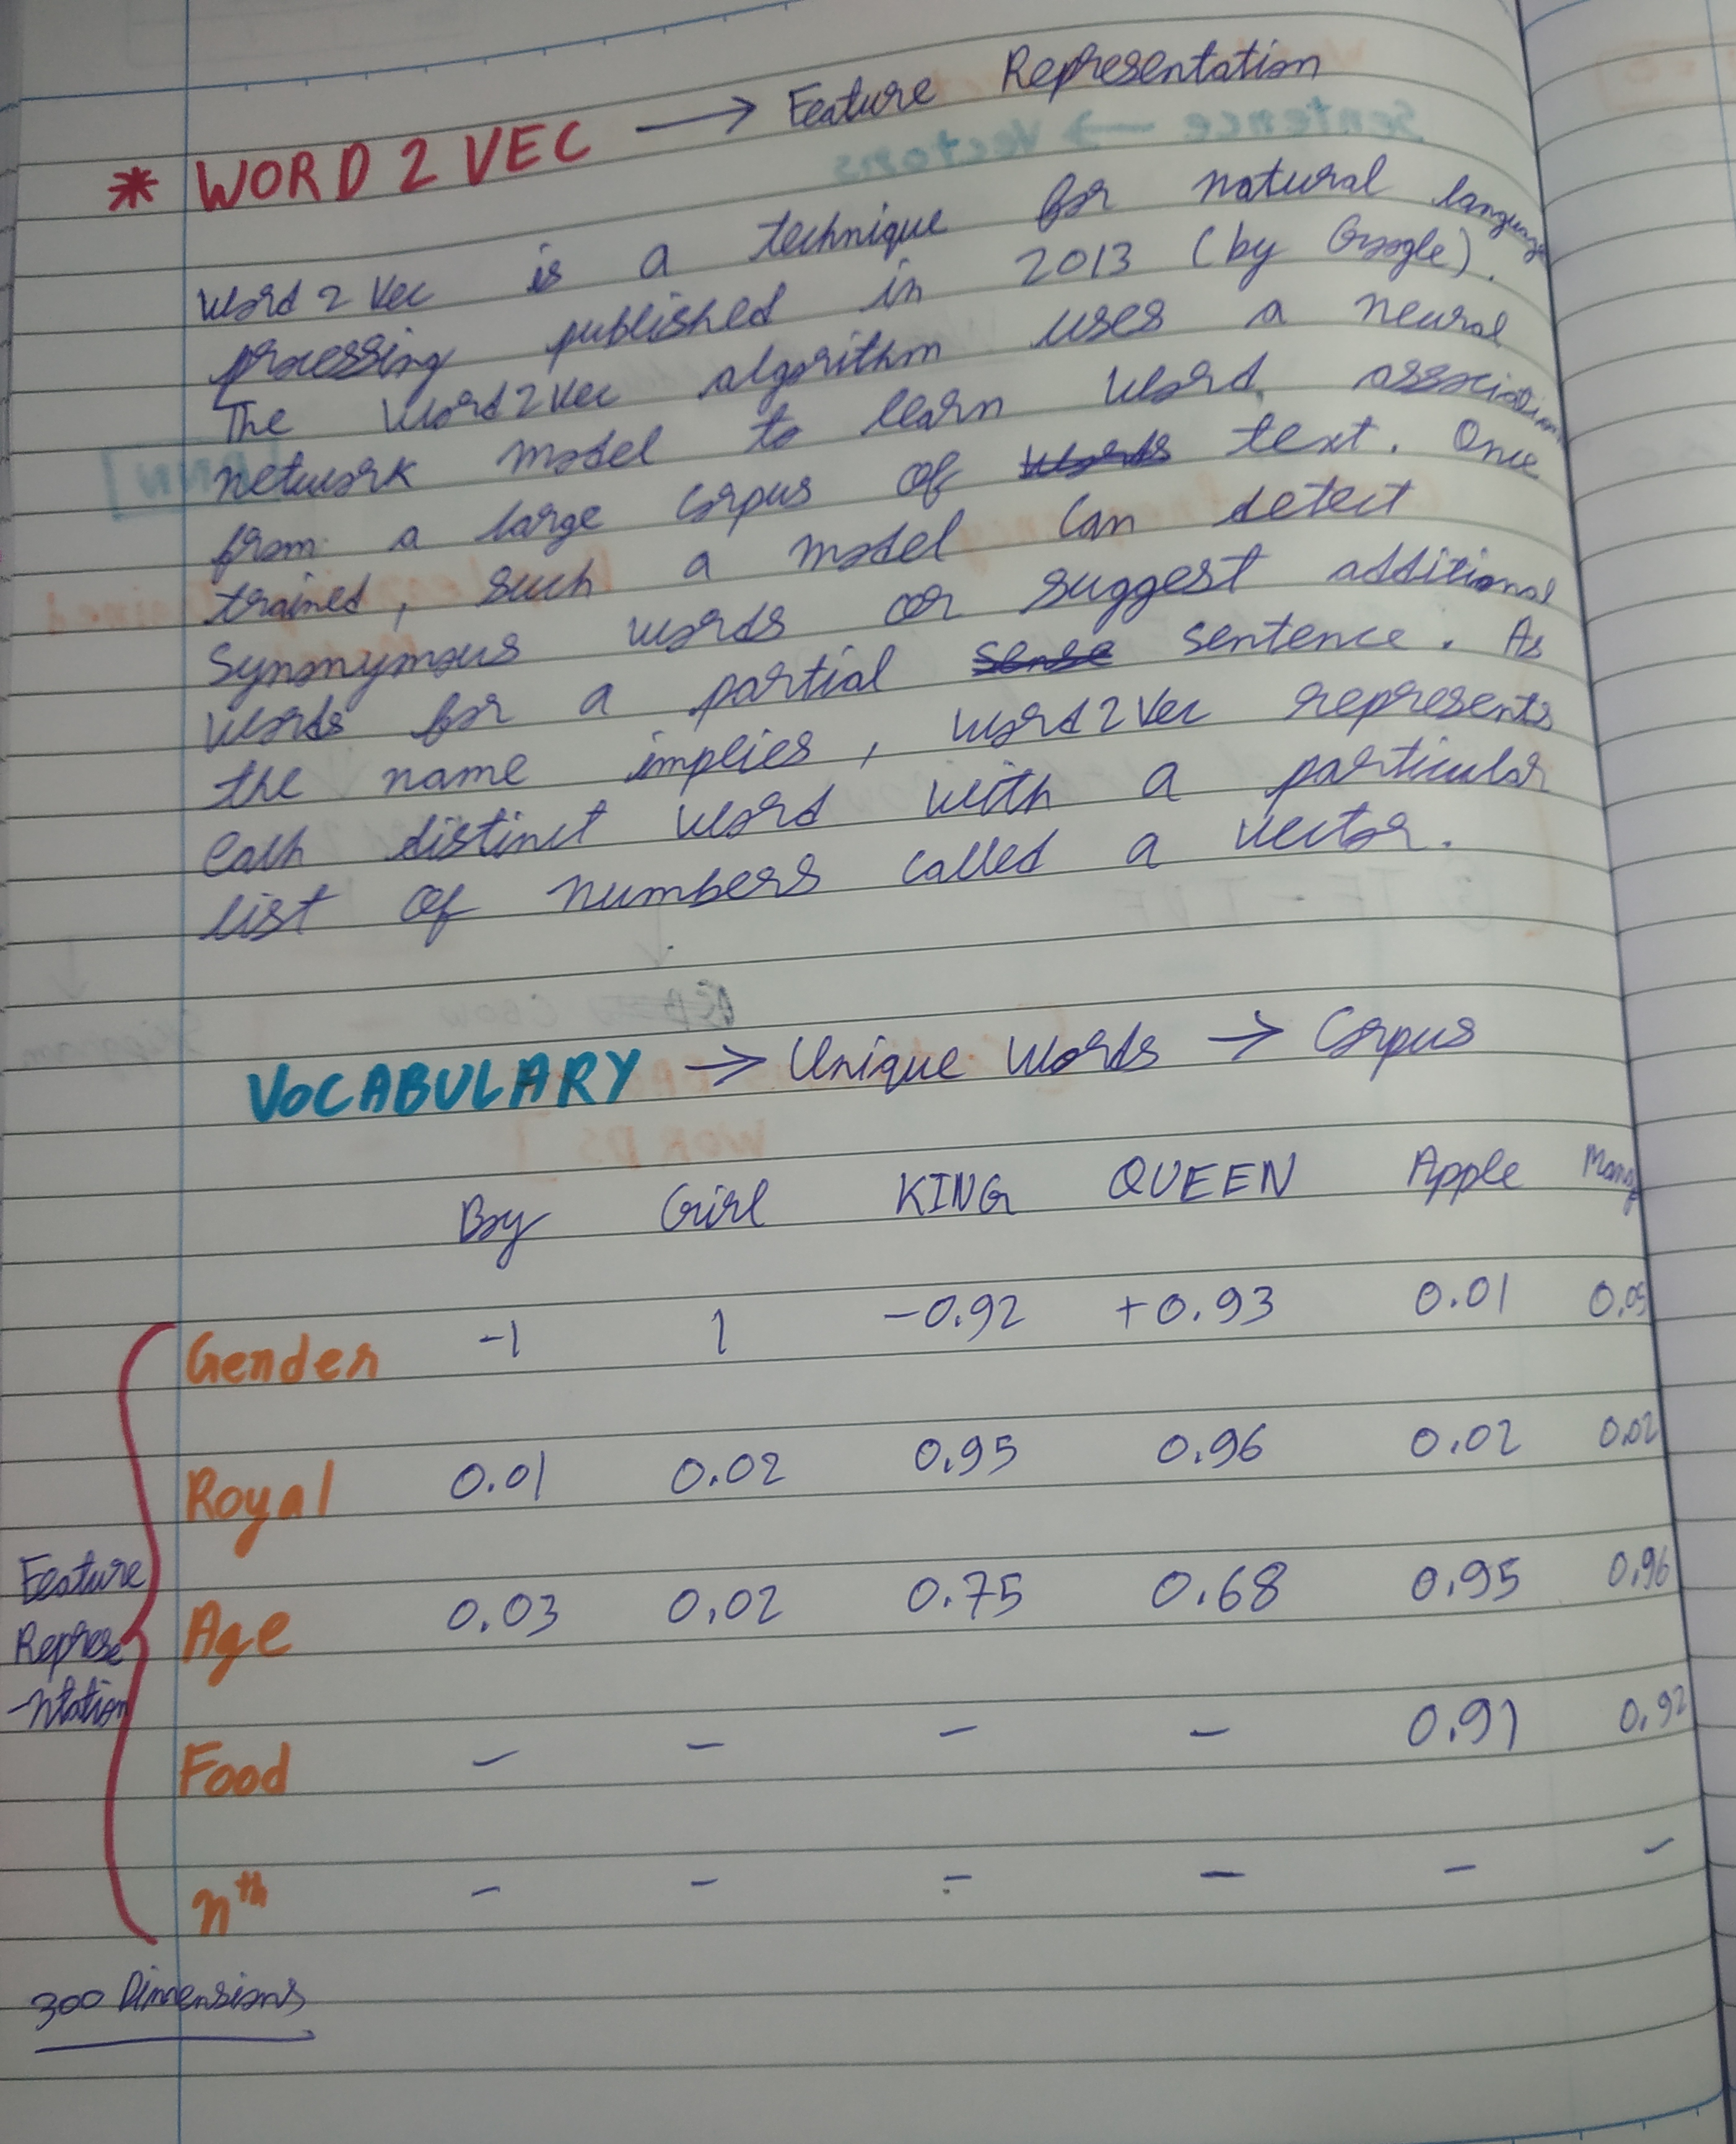 * WORD 2 VEC → Feature Representation
Word 2 Vec is a technique for natural language
processing published in 2013 (by Google).
The Word2Vec algorithm uses a neural
network model to learn word associations
from a large corpus of text. Once
trained, such a model can detect
synonymous words or suggest additional
words for a partial sentence. As
the name implies, word2Vec represents
each distinct word with a particular
list of numbers called a vector.
VOCABULARY → Unique Words → Corpus
Boy Girl KING QUEEN Apple
Gender -1 1 -0.92 +0.93 0.01
Royal 0.01 0.02 0.95 0.96 0.02 0.02
Age 0.03 0.02 0.75 0.68 0.95 0.96
Food - - - - 0.91 0.92
nth - - - - - -
Feature
Represe
-ntation
300 Dimensions